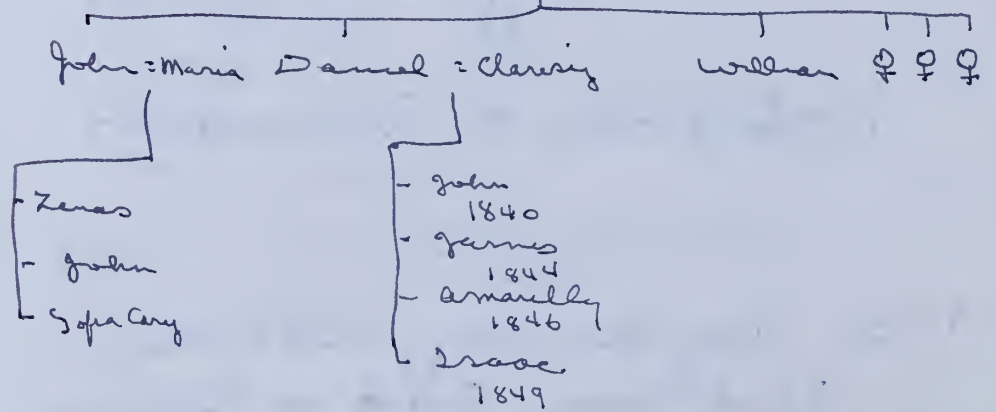 John = Maria Daniel = Claresiy William ♀ ♀ ♀
- Zenas
- John
- Sofia Cary
- John
1840
- James
1844
- Amarilly
1846
Isaac
1849